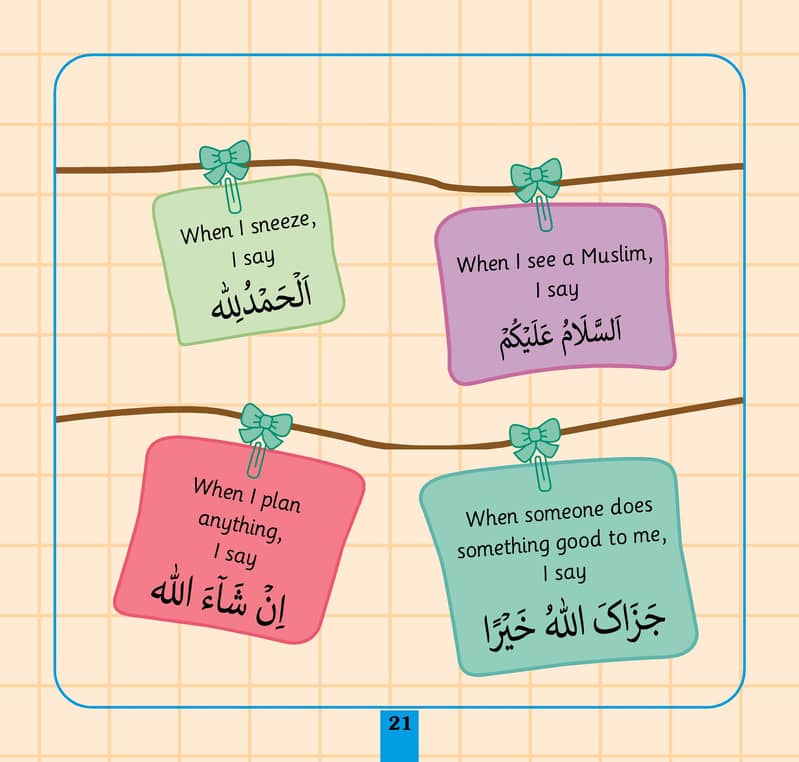 When I sneeze,
I say
اَلْحَمْدُلِلّٰه
When I see a Muslim,
I say
اَلسَّلَامُ عَلَيْكُمْ
When I plan
anything,
I say
اِنْ شَآءَ اللّٰه
When someone does
something good to me,
I say
جَزَاکَ اللّٰهُ خَيْرًا
21